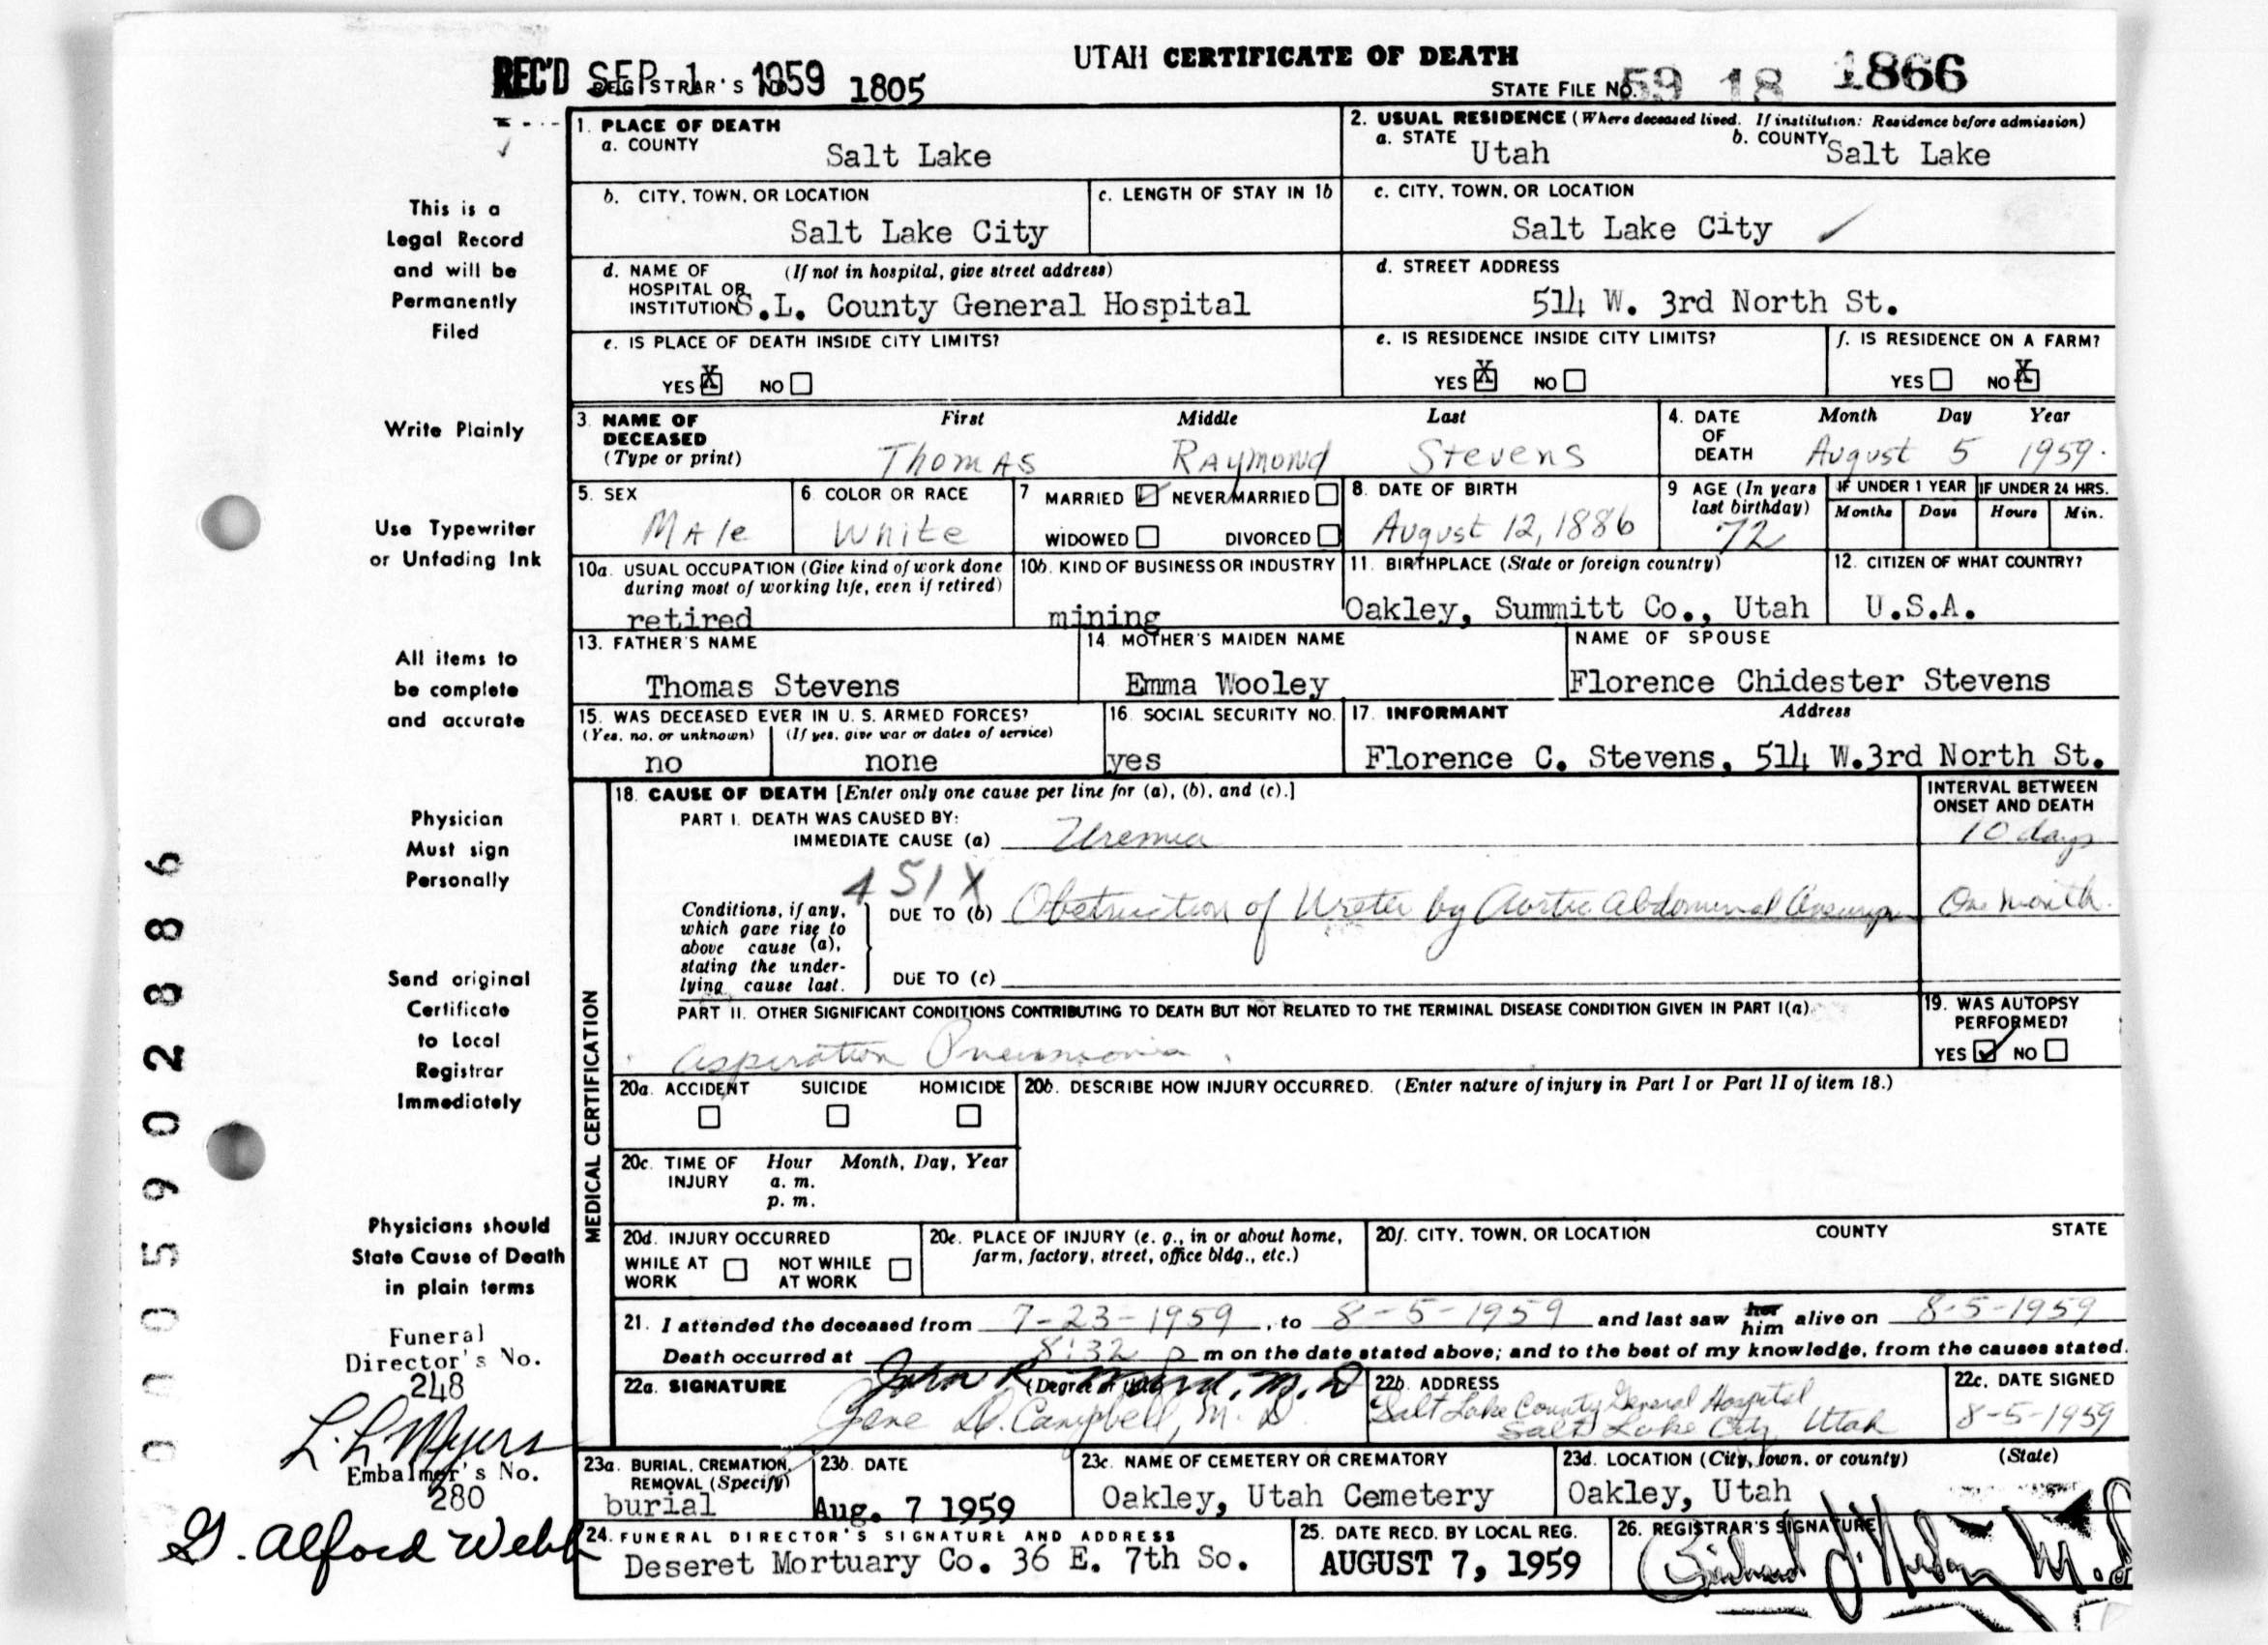 UTAH CERTIFICATE OF DEATH
REC'D SEP 1 1959 REGISTRAR'S 1805
STATE FILE NO. 59 18 1866
1. PLACE OF DEATH
a. COUNTY Salt Lake
2. USUAL RESIDENCE (Where deceased lived. If institution: Residence before admission)
a. STATE Utah b. COUNTY Salt Lake
b. CITY, TOWN, OR LOCATION Salt Lake City
c. LENGTH OF STAY IN 1b
c. CITY, TOWN, OR LOCATION Salt Lake City
d. NAME OF HOSPITAL OR INSTITUTION (If not in hospital, give street address)
S.L. County General Hospital
d. STREET ADDRESS
514 W. 3rd North St.
e. IS PLACE OF DEATH INSIDE CITY LIMITS?
YES X NO
e. IS RESIDENCE INSIDE CITY LIMITS?
YES X NO
f. IS RESIDENCE ON A FARM?
YES NO X
3. NAME OF DECEASED (Type or print)
First Middle Last
Thomas Raymond Stevens
4. DATE OF DEATH Month Day Year
August 5 1959.
5. SEX
Male
6. COLOR OR RACE
White
7 MARRIED ✓ NEVER MARRIED
WIDOWED DIVORCED
8. DATE OF BIRTH
August 12, 1886
9 AGE (In years last birthday)
72
IF UNDER 1 YEAR
Months Days
IF UNDER 24 HRS.
Hours Min.
10a. USUAL OCCUPATION (Give kind of work done during most of working life, even if retired)
retired
10b. KIND OF BUSINESS OR INDUSTRY
mining
11. BIRTHPLACE (State or foreign country)
Oakley, Summitt Co., Utah
12. CITIZEN OF WHAT COUNTRY?
U.S.A.
13. FATHER'S NAME
Thomas Stevens
14. MOTHER'S MAIDEN NAME
Emma Wooley
NAME OF SPOUSE
Florence Chidester Stevens
15. WAS DECEASED EVER IN U. S. ARMED FORCES?
(Yes, no, or unknown) (If yes, give war or dates of service)
no none
16. SOCIAL SECURITY NO.
yes
17. INFORMANT Address
Florence C. Stevens, 514 W.3rd North St.
MEDICAL CERTIFICATION
18. CAUSE OF DEATH [Enter only one cause per line for (a), (b), and (c).]
INTERVAL BETWEEN ONSET AND DEATH
PART I. DEATH WAS CAUSED BY:
IMMEDIATE CAUSE (a) Uremia 10 days
451X
Conditions, if any, which gave rise to above cause (a), stating the underlying cause last.
DUE TO (b) Obstruction of Ureter by Aortic Abdominal One month.
DUE TO (c)
PART II. OTHER SIGNIFICANT CONDITIONS CONTRIBUTING TO DEATH BUT NOT RELATED TO THE TERMINAL DISEASE CONDITION GIVEN IN PART I(a)
Aspiration Pneumonia.
19. WAS AUTOPSY PERFORMED?
YES ✓ NO
20a. ACCIDENT SUICIDE HOMICIDE
20b. DESCRIBE HOW INJURY OCCURRED. (Enter nature of injury in Part I or Part II of item 18.)
20c. TIME OF INJURY Hour Month, Day, Year
a. m.
p. m.
20d. INJURY OCCURRED
WHILE AT WORK NOT WHILE AT WORK
20e. PLACE OF INJURY (e. g., in or about home, farm, factory, street, office bldg., etc.)
20f. CITY, TOWN, OR LOCATION COUNTY STATE
21. I attended the deceased from 7-23-1959, to 8-5-1959 and last saw her him alive on 8-5-1959
Death occurred at 8:32 p m on the date stated above; and to the best of my knowledge, from the causes stated.
22a. SIGNATURE (Degree or title)
John R. Ward, M.D
Gene D. Campbell, M. D.
22b. ADDRESS
Salt Lake County General Hospital
Salt Lake City, Utah
22c. DATE SIGNED
8-5-1959
23a. BURIAL, CREMATION, REMOVAL (Specify)
burial
23b. DATE
Aug. 7 1959
23c. NAME OF CEMETERY OR CREMATORY
Oakley, Utah Cemetery
23d. LOCATION (City, town, or county) (State)
Oakley, Utah
24. FUNERAL DIRECTOR'S SIGNATURE AND ADDRESS
Deseret Mortuary Co. 36 E. 7th So.
25. DATE RECD. BY LOCAL REG.
AUGUST 7, 1959
26. REGISTRAR'S SIGNATURE
This is a
Legal Record
and will be
Permanently
Filed
Write Plainly
Use Typewriter
or Unfading Ink
All items to
be complete
and accurate
Physician
Must sign
Personally
Send original
Certificate
to Local
Registrar
Immediately
Physicians should
State Cause of Death
in plain terms
Funeral
Director's No.
248
L. L. Myers
Embalmer's No.
280
G. Alford Webb
0005902886